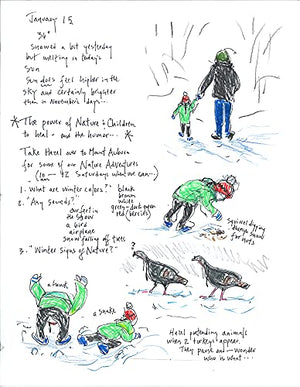 January 15
34°
snowed a bit yesterday
but melting in today's
sun
Sun does feel higher in the
sky and certainly brighter
than in November's days...
* The power of Nature & Children
to heal - and the humor... *
Take Hazel over to Mount Auburn
for some of our Nature Adventures
(10 — 42 Saturdays when we can...)
1. What are winter colors?"
black
brown
white
green - dark green
red (berries)
2. "Any sounds?"
our feet in
the snow
a bird
airplane
snow falling off trees
3. "Winter Signs of Nature?"
Squirrel digging
through snow
for nuts
a hawk
a snake
?
Hazel pretending animals
when 2 turkeys appear.
They pause and — wonder
who is what...